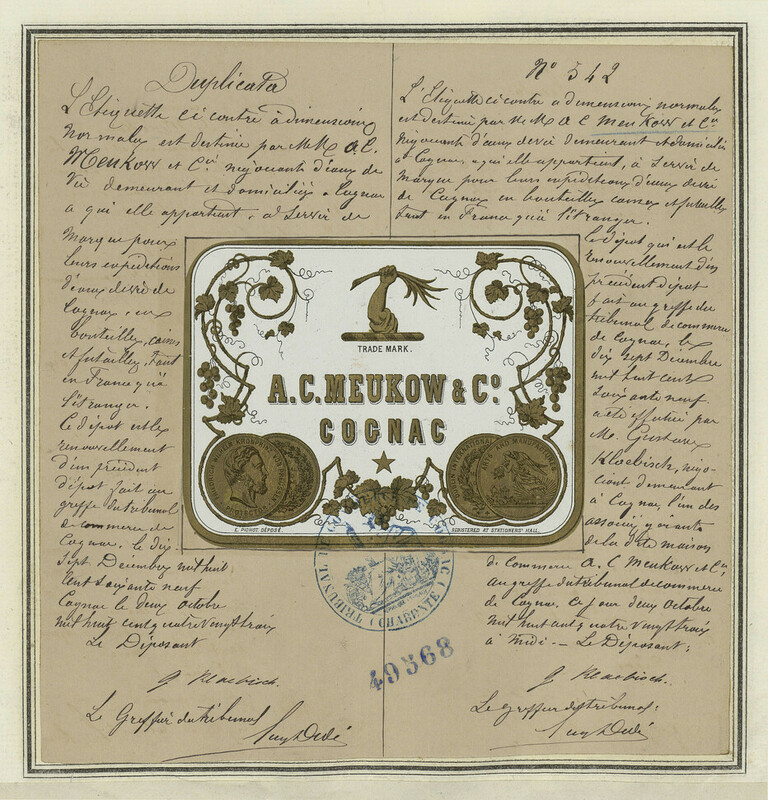 Duplicata
L'Etiquette ci contre à dimensions
normales est destinée par M.M. A.C.
Meukow et Cie négociants d'eaux de
Vie demeurant et domiciliés à Cognac
a qui elle appartient, à servir de
Marque pour
leurs expéditions
d'eaux de vie de
Cognac en
bouteilles, caisses
et futailles, tant
en France qu'à
l'étranger.
Ce dépôt est le
renouvellement
d'un précédent
dépôt fait au
greffe du tribunal
de commerce de
Cognac, le dix
sept Décembre mil huit
cent soixante neuf
Cognac le deux Octobre
mil huit cent quatre vingt trois
Le Déposant
G Klaebisch.
Le Greffier du tribunal
No 542
L'Etiquette ci contre a dimensions normales
est destinée par M.M. A C Meukow et Cie
négociants d'eaux de vie demeurant et domiciliés
à Cognac, a qui elle appartient, à servir de
Marque pour leurs expéditions d'eaux de vie
de Cognac en bouteilles caisses et futailles
tant en France qu'à l'étranger.
Ce dépôt qui est le
renouvellement d'un
précédent dépôt
fait au greffe du
tribunal de commerce
de Cognac, le
dix sept Décembre
mil huit cent
soixante neuf
a été effectué par
M. Gustave
Klaebisch, négo-
ciant demeurant
à Cognac, l'un des
associés gérants
de la dite maison
de Commerce A. C Meukow et Cie,
au greffe du tribunal de commerce
de Cognac, ce jour deux Octobre
mil huit cent quatre vingt trois
à midi — Le Déposant:
G Klaebisch.
Le greffier du tribunal:
TRADE MARK.
A.C. MEUKOW & Co.
COGNAC
E. PICHOT DÉPOSÉ.
REGISTERED AT STATIONERS' HALL.
TRIBUNAL DE
(CHARENTE)
49568